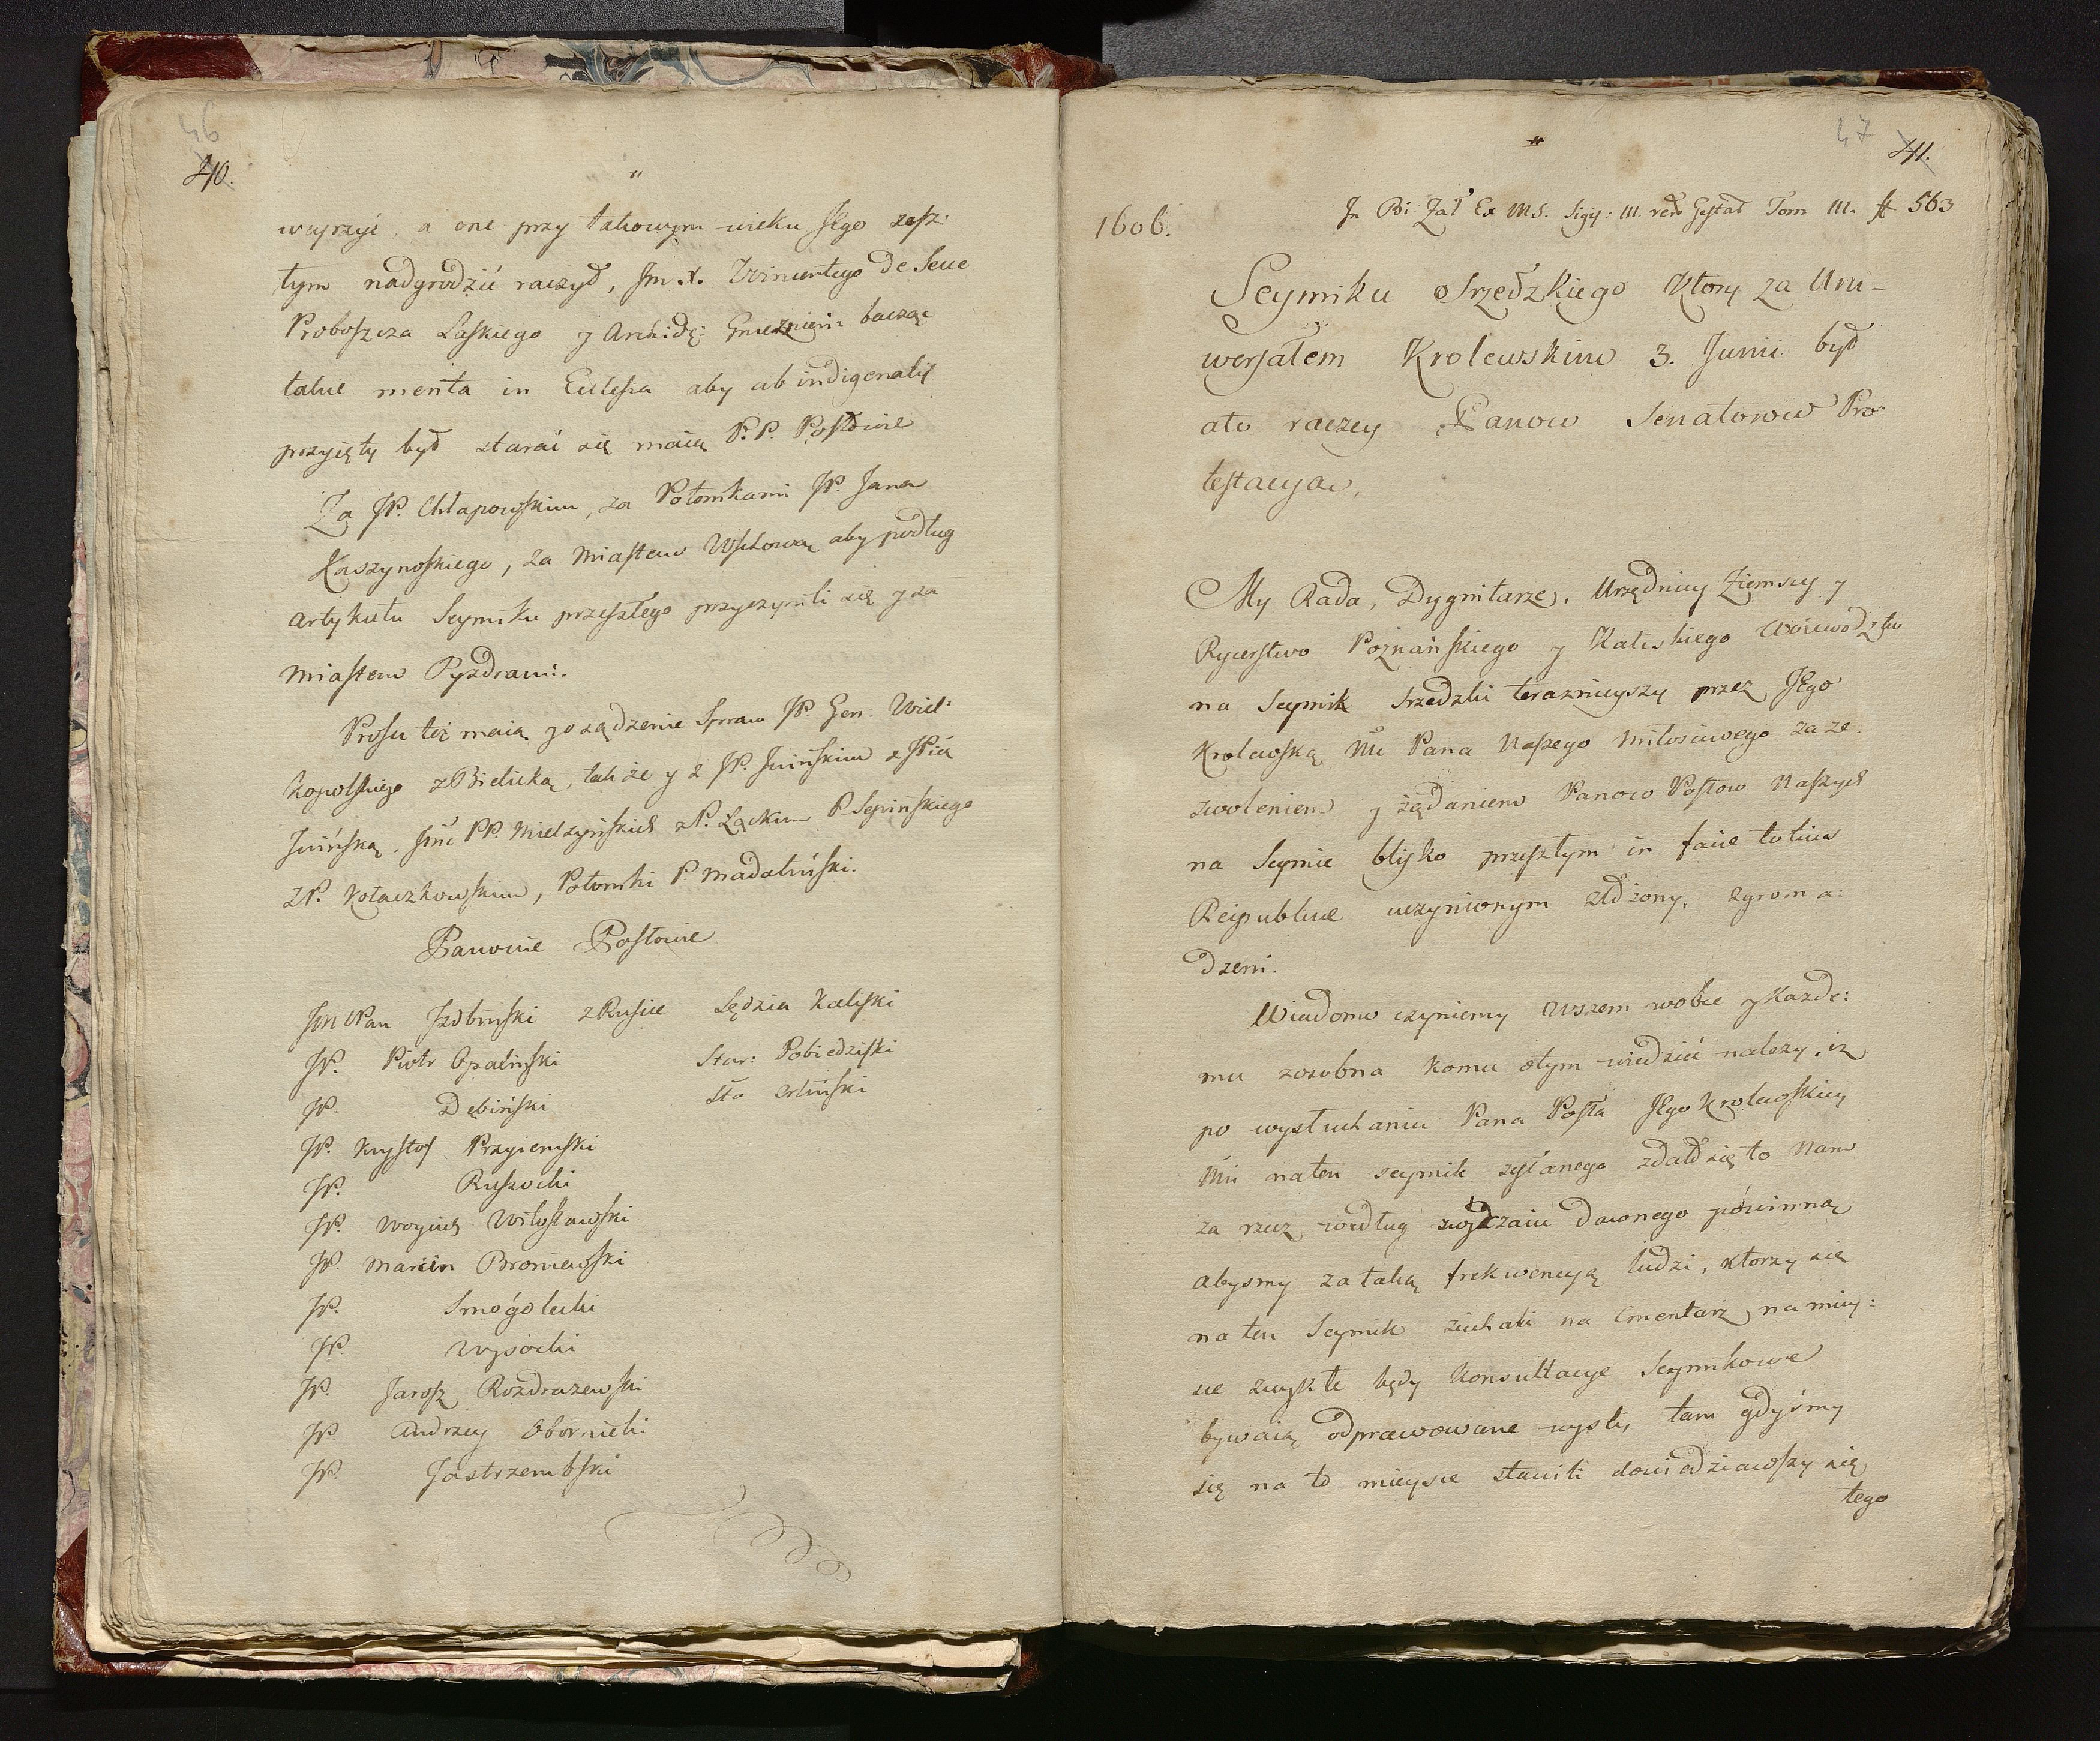 46
40.
"
weyrzyć, a one przy takowym wieku JEgo zesz:
tym nadgrodzić raczył, Jm X. Wincentego De Seve
Proboszcza Łaskiego y Archidę: Gnieznień: bacząc
talue merita in Eclesia aby ab indigenatÿ
przyięty był starać się maią P.P. Posłowie
Za JP. Chłapowskim, za Potomkami JP. Jana
Kaszynoskiego, za Miastem Wschową aby podług
artykułu Seymiku przeszłego przyczynili się y za
Miastem Pyzdrami.
Prosić też maią y osądzenie Spraw JP. Gen. Wiel:
kopolskiego z Bielicką, także y z JP. Iwińskim z JPią
Iwińską. Jmć PP. Mielzyńskich z P. Łąckim P Sepińskiego
z P. Kołaczkowskim, Potomki P. Madaliński.
Panowie Posłowie
Jm Pan Izdbinski z Rusice Sędzia Kaliski
JP. Piotr Opalinski Star: Pobiedziski
JP. Dębiński Sta
JP. Krystof Przyiemski
JP. Ruszocki
JP. Woyciech Miłosławski
JP. Marcin Broniewski
JP. Smogolecki
JP. Wysocki
JP. Jarosz Rozdrazewski
JP Andrzey Obornicki
JP. Jastrzembski
47
41.
"
1606.
In Bi Zał Ex MS. Sigis: III. rerū Gestar Tom III. f 563
Seymiku Srzedzkiego Ktory za Uni-
wersałem Krolewskim 3. Junii był
ato raczey Panow Senatorow Pro
testacya,
My Rada, Dygnitarze, Urzędnicy Ziemscy y
Rycerstwo Poznańskiego y Kaliskiego Woiewodztw
na Seymik Srzedzki teraznieyszy przez JEgo
Krolewską Mć Pana Naszego Miłosciwego za ze
zwoleniem y żądaniem Panow Posłow Naszych
na Seymie blisko przeszłym in facie totius
Reipublicae uczynionym złożony, zgroma:
dzeni.
Wiadomo czyniemy wszem wobec y Kazde:
mu zosobna komu otym wiedzieć nalezy, iz
po wysłuchaniu Pana Posła JEgo Krolewskiey
Mći naten seymik zesłanego zdało się to Nam
za rzecz według zwyczaiu dawnego powinną
abysmy za taką frekwencyą ludzi, ktorzy się
na ten Seymik ziechali na Cmentarz, na miey:
sce zwykłe kędy Konsultacye Seymikowe
bywaią odprawowane wyszli, tam gdyśmy
się na to mieysce stawili dowiedziawszy się
tego